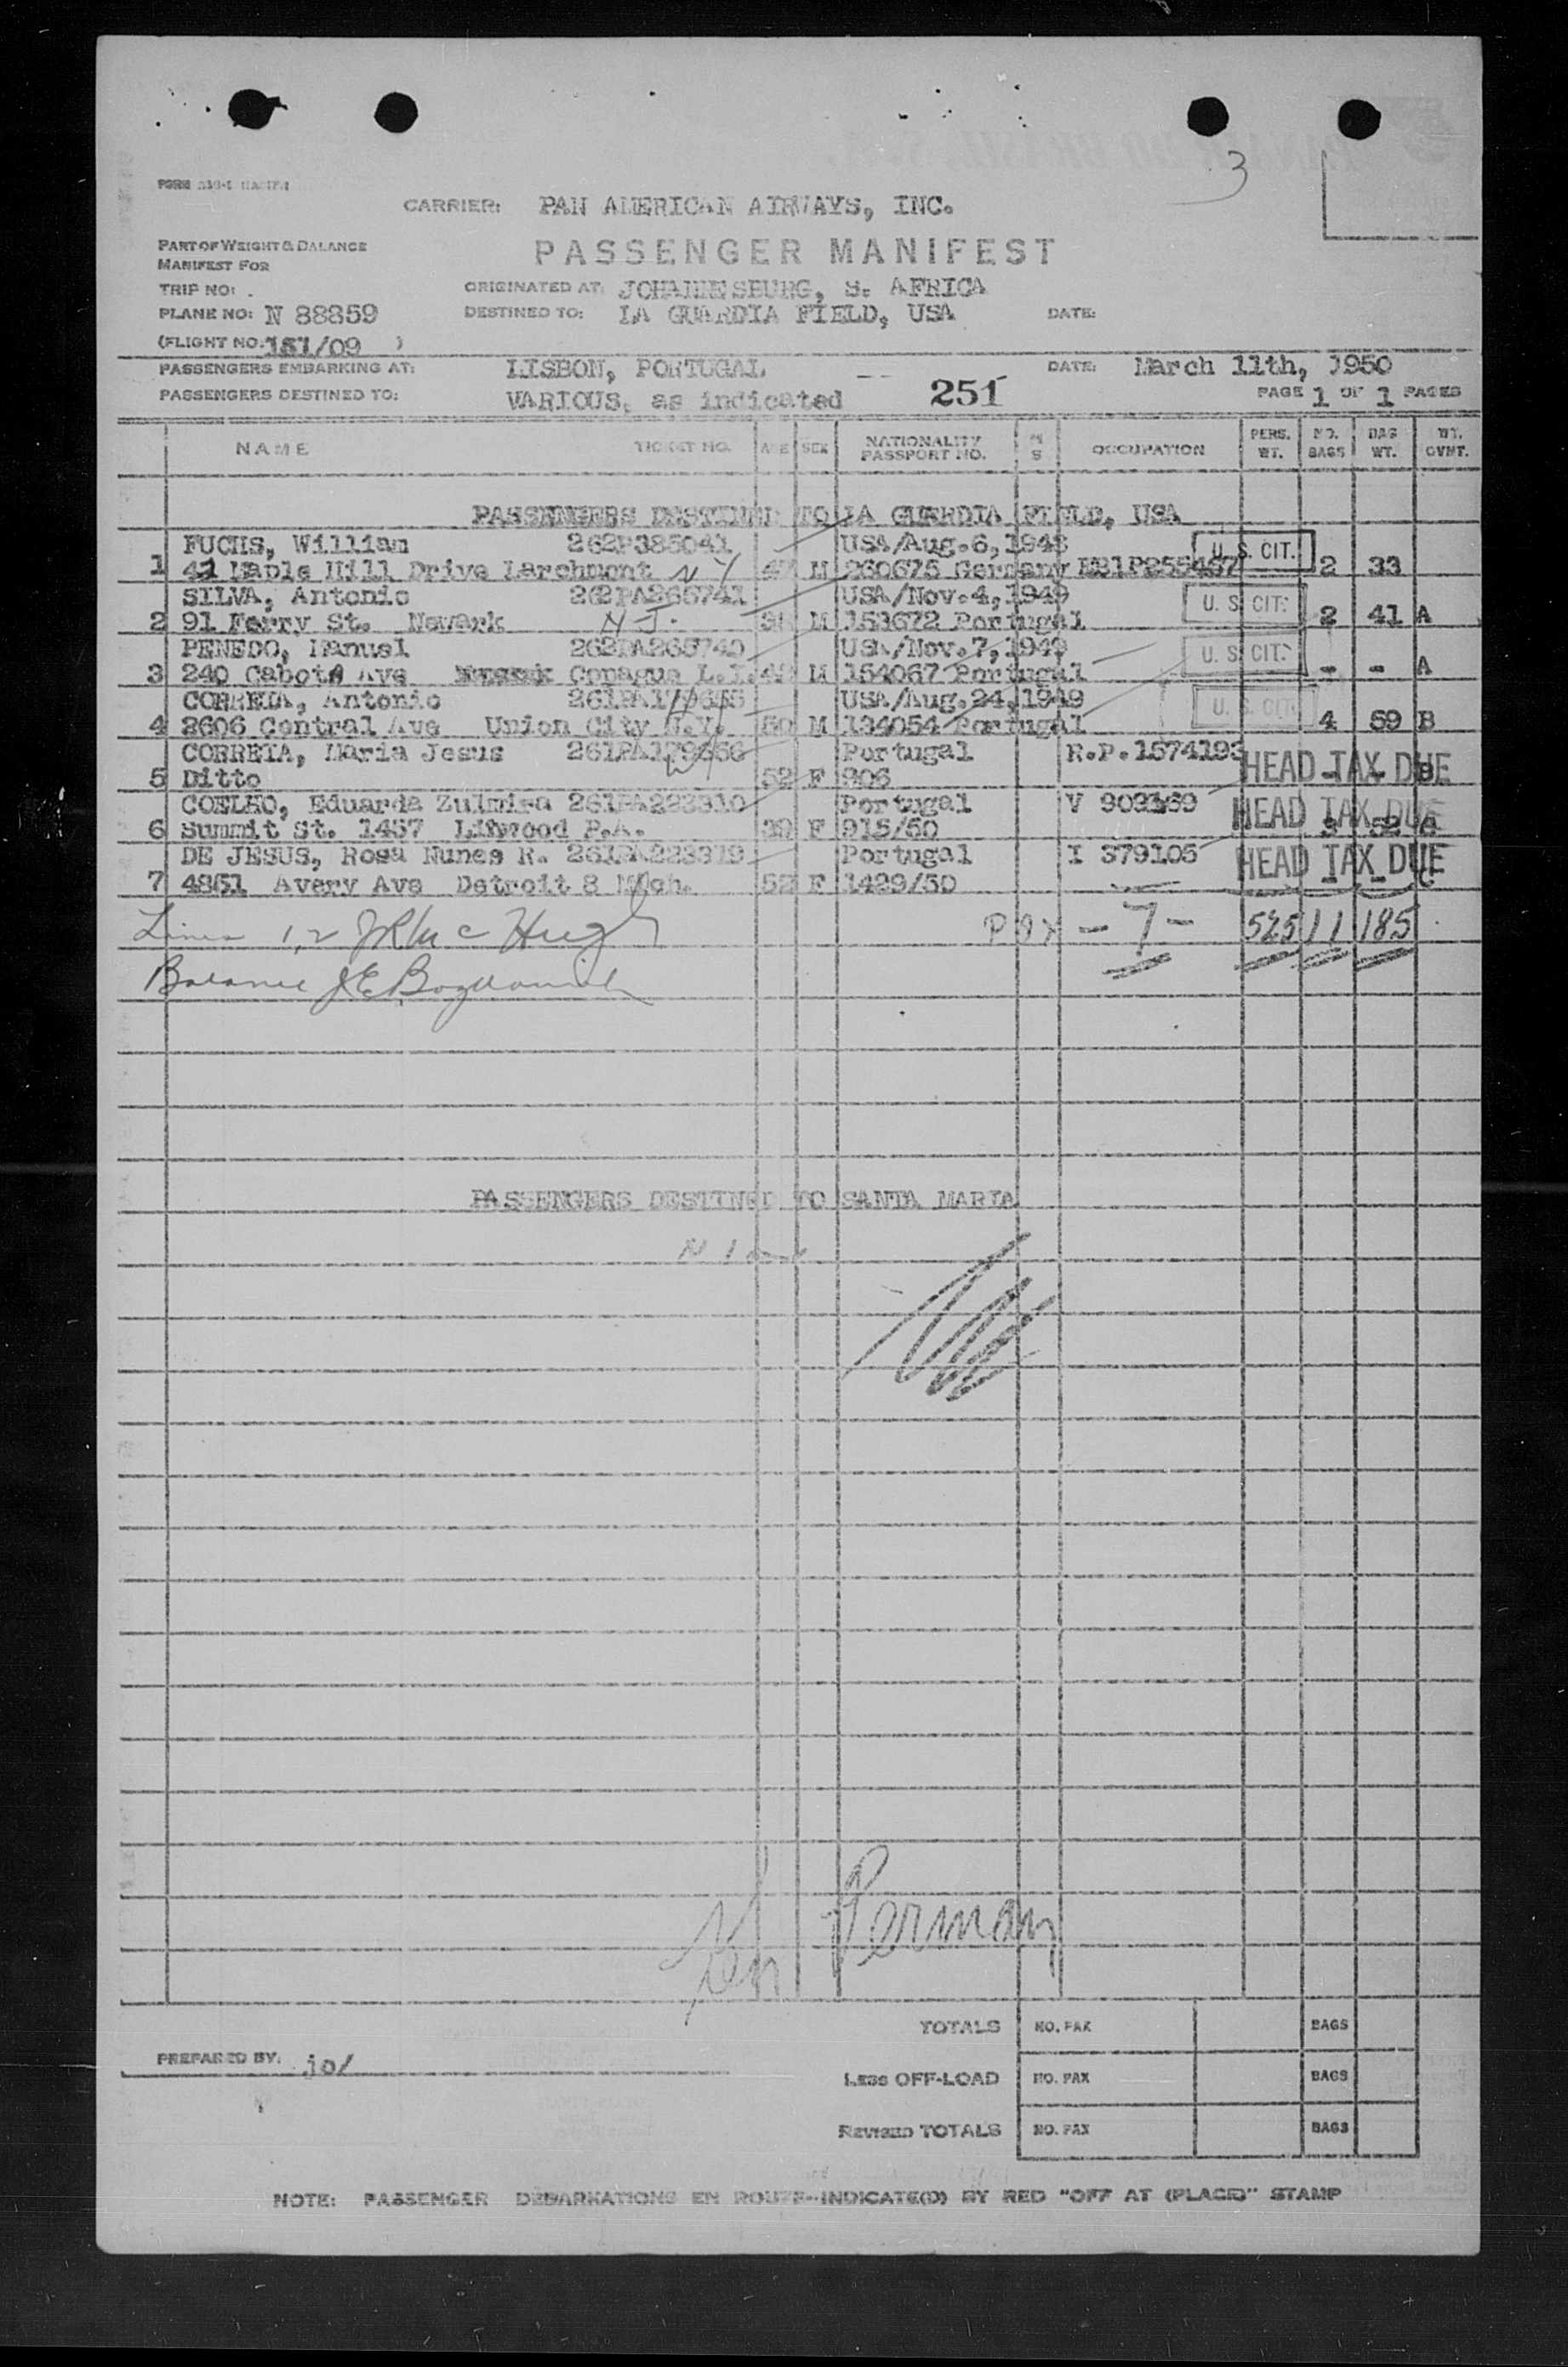 3
CARRIER: PAN AMERICAN AIRWAYS, INC.
PART OF WEIGHT & BALANCE
MANIFEST FOR
PASSENGER MANIFEST
TRIP NO:
ORIGINATED AT: JOHANNESBURG, S. AFRICA
PLANE NO: N 88859
DESTINED TO: LA GUARDIA FIELD, USA DATE:
(FLIGHT NO. 151/09 )
PASSENGERS EMBARKING AT: LISBON, PORTUGAL DATE: March 11th, 1950
PASSENGERS DESTINED TO: VARIOUS, as indicated 251 PAGE 1 OF 1 PAGES
NAME TICKET NO. AGE SEX NATIONALITY PASSPORT NO. M S OCCUPATION PERS. WT. NO. BAGS BAG WT. WT. OVNT.
PASSENGERS DESTINED TO LA GUARDIA FIELD, USA
FUCHS, William 262P385041 USA/Aug.6,1948 U. S. CIT.
1 Maple Hill Drive Larchmont NY 47 M 260675 Germany 2 33
SILVA, Antonio 262PA265741 USA/Nov.4,1949 U. S. CIT.
2 91 Ferry St. Newark N J. M 153672 Portugal 2 41 A
PENEDO, Manuel 262PA265740 USA/Nov.7,1949 U. S. CIT.
3 240 Cabot Ave Copague L.I. M 154067 Portugal - - A
CORREIA, Antonio USA/Aug.24,1949 U. S. CIT.
4 2606 Central Ave Union City N.Y. 50 M 134054 Portugal 4 59 B
CORREIA, Maria Jesus 261PA179656 Portugal R.P.1574193 HEAD TAX DUE
5 Ditto 52 F 906 B
COELHO, Eduarda Zulmira 261PA223310 Portugal V 902169 HEAD TAX DUE
6 Summit St. 1457 Linwood P.A. 39 F 915/50 3 52 C
DE JESUS, Rosa Nunes R. 261PA223319 Portugal I 379105 HEAD TAX DUE
7 4851 Avery Ave Detroit 8 Mich. 52 F 1429/50 - - C
Lines 1,2 JR McHugh Pax - 7 - 525 11 185
Balance JE
PASSENGERS DESTINED TO SANTA MARIA
TOTALS NO. PAX BAGS
PREPARED BY: jo/
LESS OFF-LOAD NO. PAX BAGS
REVISED TOTALS NO. PAX BAGS
NOTE: PASSENGER DEBARKATIONS EN ROUTE--INDICATE(D) BY RED "OFF AT (PLACE)" STAMP